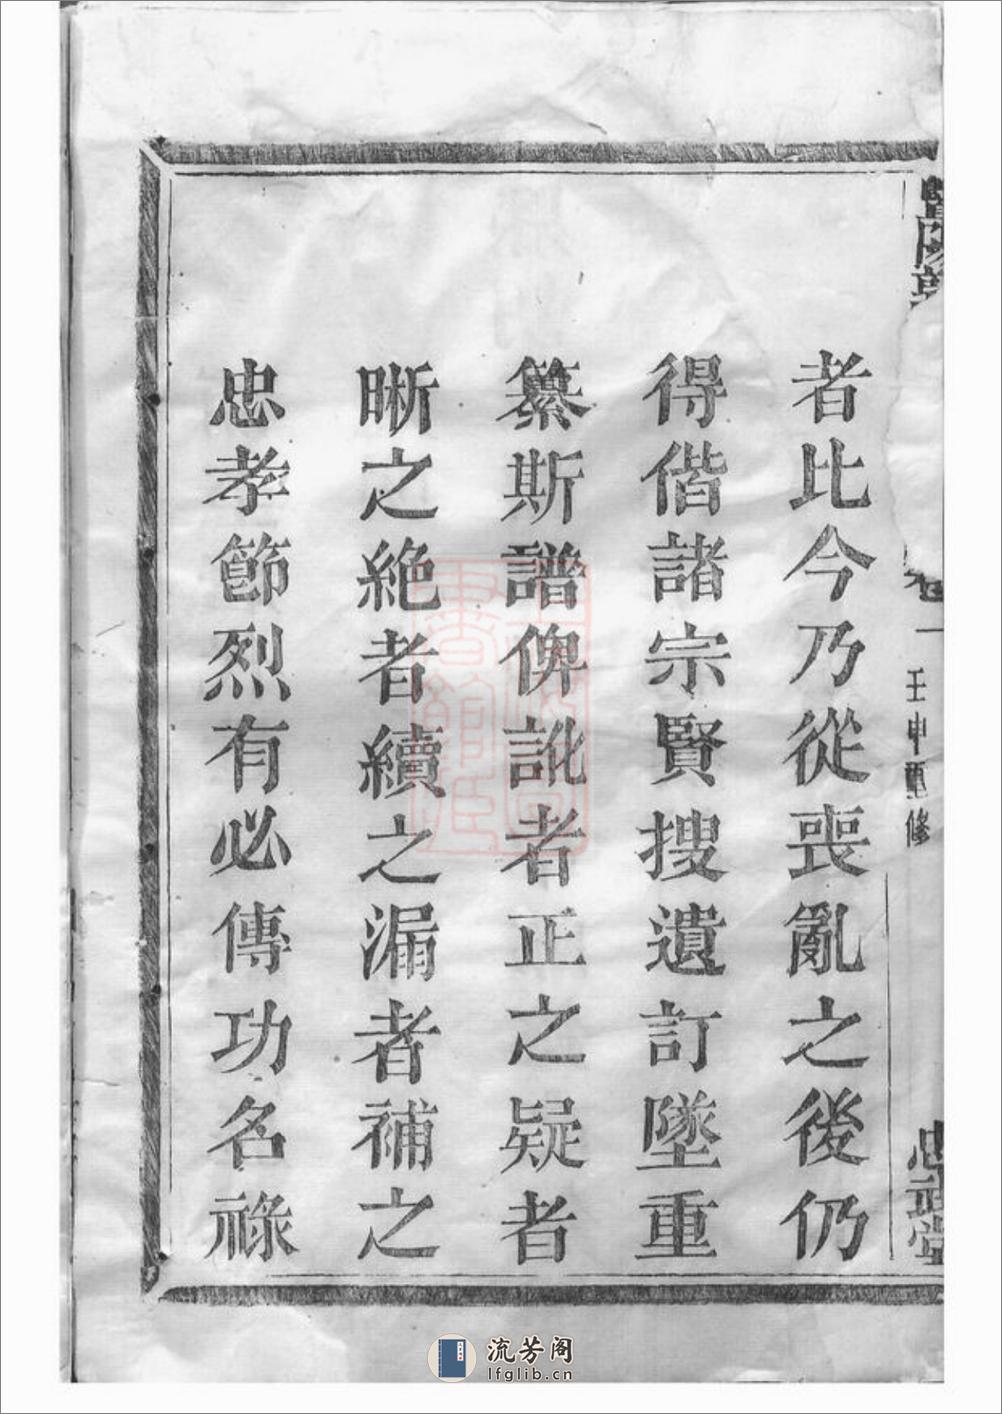 壬申重修
者比今乃從喪亂之後仍
得偕諸宗賢搜遺訂墜重
纂斯譜俾訛者正之疑者
晰之絶者續之漏者補之
忠孝節烈有必傳功名祿
流芳阁
lfglib.cn